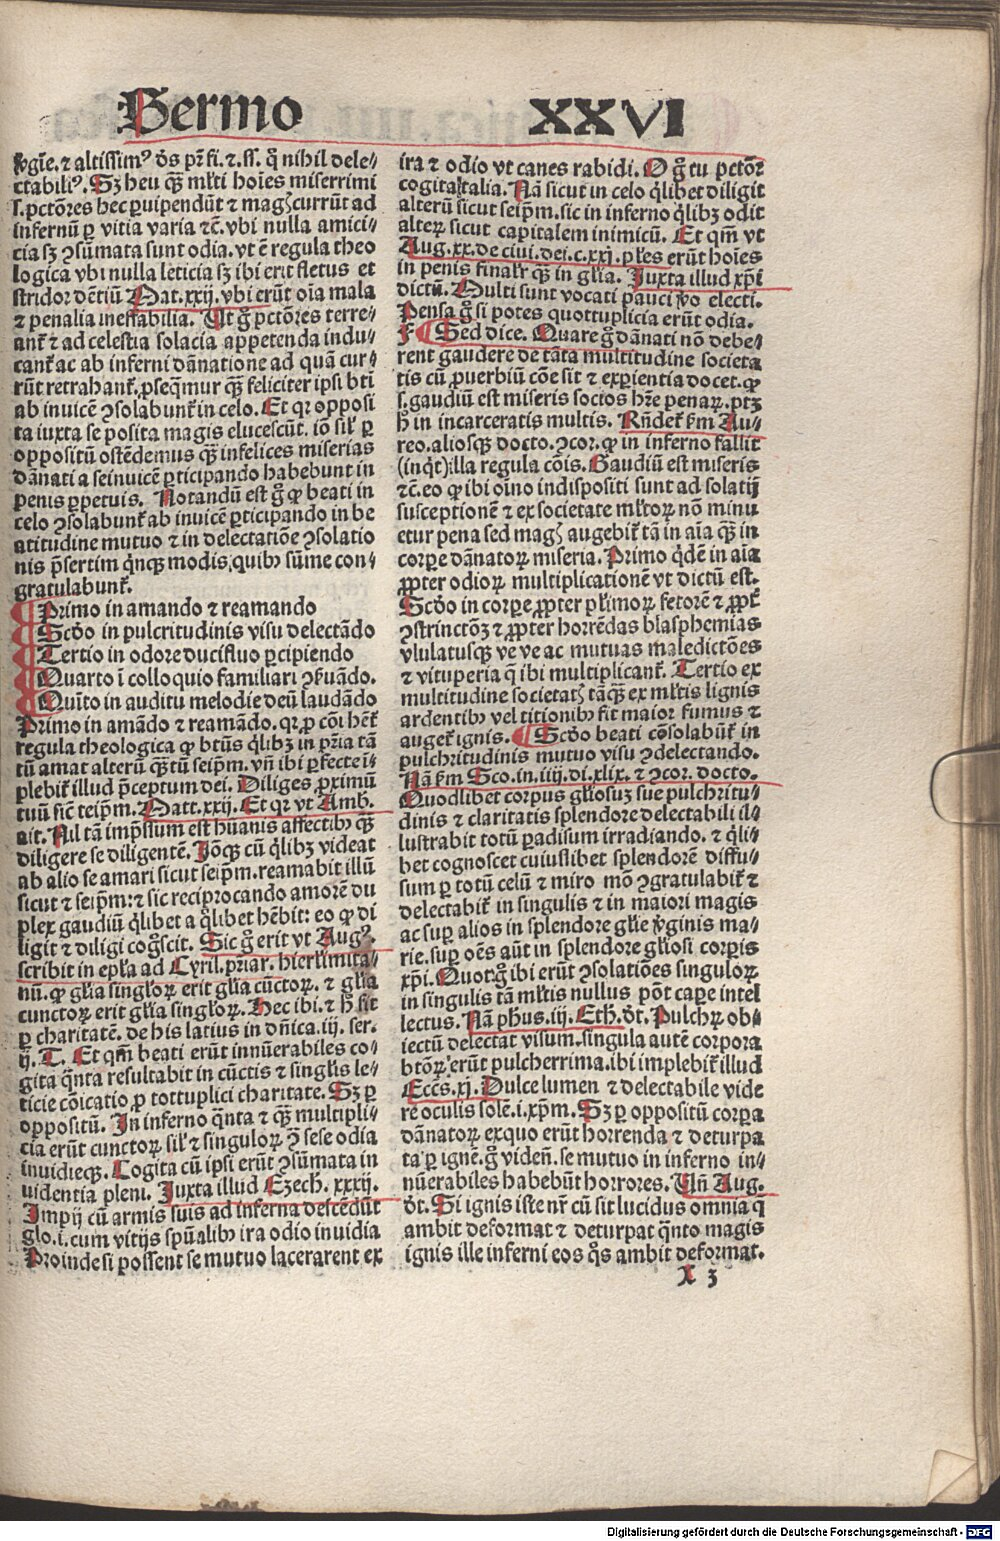 Sermo XXVI
ꝟgīe. ⁊ altissimꝰ ds pr̄ fi. ⁊. ſſ. q̄ nihil dele⸗
ctabiliꝰ. Sꝫ heu qꝫ ml̄ti hoīes miserrimi
s. pctōres hec ꝑuipendūt ⁊ magꝭ currūt ad
infernū ꝑ vitia varia ⁊c̄. vbi nulla amici⸗
cia sꝫ ꝯsūmata sunt odia. vt ē regula theo
logica vbi nulla leticia sꝫ ibi erit fletus et
stridor dētiū Mat. xxij. vbi erūt oīa mala
⁊ penalia ineffabilia. Ut g̊ pctōres terre⸗
ant᷑ ⁊ ad celestia solacia appetenda indu⸗
cant᷑ ac ab inferni dānatione ad quā cur⸗
rūt retrahant᷑. ꝓseqmur qꝫ feliciter ipsi bti
ab inuicē ꝯsolabunt᷑ in celo. Et qꝛ opposi
ta iuxta se posita magis elucescūt. iō silꝭ ꝑ
oppositū ostēdemus qꝫ infelices miserias
dānati a seinuicē ꝑticipando habebunt in
penis ꝑpetuis. Notandū est g̊ ꝙ beati in
celo ꝯsolabunt᷑ ab inuicē ꝑticipando in be
atitudine mutuo ⁊ in delectatiōe ꝯsolatio
nis p̄sertim qnqꝫ modis, quibꝫ sūme con⸗
gratulabunt᷑.
Primo in amando ⁊ reamando
Scdo in pulcritudinis visu delectādo
Tertio in odore ducifluo ꝑcipiendo
Quarto ī colloquio familiari ꝯẜuādo.
Quīto in auditu melodie deū laudādo
Primo in amādo ⁊ reamādo. qꝛ ꝓ cōi hēt᷑
regula theologica ꝙ btūs qlibꝫ in pr̄ia tā
tū amat alterū qꝫtū seipm. vn̄ ibi ꝑfecte ī⸗
plebit᷑ illud p̄ceptum dei. Diliges ꝓximū
tuū sic̄ teipm. Matt. xxij. Et qꝛ vt Amb.
ait. Nil tā imp̄ssum est hūanis affectibꝫ qꝫ
diligere se diligentē. Jōqꝫ cū qlibꝫ videat
ab alio se amari sicut seipm. reamabit illū
sicut ⁊ seipm: ⁊ sic reciprocando amorē du
plex gaudiū qlibet a qlibet hēbit: eo ꝙ di
ligit ⁊ diligi cog̊scit. Sic g̊ erit vt Augꝰ.
scribit in epl̄a ad Cyril. pr̄iar. hierl̄imita⸗
nū. ꝙ gl̄ia singloꝝ erit gl̄ia cūctoꝝ. ⁊ gl̄ia
cunctoꝝ erit gl̄ia singloꝝ. Hec ibi. ⁊ h̄ sit
ꝑ charitatē. de his latius in dn̄ica. iij. ser.
ij. T. Et qm̄ beati erūt innūerabiles co⸗
gita qnta resultabit in cūctis ⁊ singlis le⸗
ticie cōicatio ꝓ tottuplici charitate. Sꝫ ꝑ
oppositū. In inferno qnta ⁊ qꝫ multipli⸗
cia erūt cunctoꝝ silꝭ ⁊ singuloꝝ ꝯ sese odia
inuidieqꝫ. Cogita cū ipsi erūt ꝯsūmata in
uidentia pleni. Juxta illud Ezech. xxxij.
Impij cū armis suis ad inferna descēdūt
glo. i. cum vitijs spūalibꝫ ira odio inuidia
Proinde si possent se mutuo lacerarent ex
ira ⁊ odio vt canes rabidi. O g̊ tu pctōr
cogita talia. Nā sicut in celo qlibet diligit
alterū sicut seipm. sic in inferno qlibꝫ odit
alteꝝ sicut capitalem inimicū. Et qm̄ vt
Aug. xx. de ciui. dei. c. xxj. pl̄es erūt hoīes
in penis finalr̄ qꝫ in gl̄ia. Juxta illud xp̄i
dictū. Multi sunt vocati pauci ꝟo electi.
Pensa g̊ si potes quottuplicia erūt odia.
F Sed dice. Quare g̊ dānati nō debe⸗
rent gaudere de tāta multitudine societa
tis cū ꝓuerbiū cōe sit ⁊ experientia docet. ꝙ
s. gaudiū est miseris socios hr̄e penaꝝ. ptꝫ
h̄ in incarceratis multis. Rn̄det᷑ ẜm Au⸗
reo. aliosqꝫ docto. ꝯcor. ꝙ in inferno fallit
(inqt) illa regula cōis. Gaudiū est miseris
⁊c̄. eo ꝙ ibi oīno indispositi sunt ad solatij
susceptionē ⁊ ex societate ml̄toꝝ nō minu
etur pena sed magꝭ augebit᷑ tā in aīa qꝫ in
corpe dānatoꝝ miseria. Primo qdē in aīa
ꝓpter odioꝝ multiplicationē vt dictū est.
Scdo in corpe ꝓpter pl̄imoꝝ fetorē ⁊ ꝓpt᷑
ꝯstrinctōꝫ ⁊ ꝓpter horrēdas blasphemias
vlulatusqꝫ ve ve ac mutuas maledictōes
⁊ vituperia q̄ ibi multiplicant᷑. Tertio ex
multitudine societatꝭ tāqꝫ ex ml̄tis lignis
ardentibꝫ vel titionibꝫ fit maior fumus ⁊
auget᷑ ignis. Scdo beati cōsolabūt᷑ in
pulchritudinis mutuo visu ꝯdelectando.
Nā ẜm Sco. in. iiij. di. xlix. ⁊ ꝯcor. docto.
Quodlibet corpus gl̄iosuꝫ sue pulchritu⸗
dinis ⁊ claritatis splendore delectabili il⸗
lustrabit totū paradisum irradiando. ⁊ qli⸗
bet cognoscet cuiuslibet splendorē diffu⸗
sum ꝑ totū celū ⁊ miro mō ꝯgratulabit᷑ ⁊
delectabit᷑ in singulis ⁊ in maiori magis
ac suꝑ alios in splendore gl̄ie ꝟginis ma⸗
rie. suꝑ oēs aūt in splendore gl̄iosi corpis
xp̄i. Quot g̊ ibi erūt ꝯsolatiōes singuloꝝ
in singulis tā ml̄tis nullus pōt cape intel
lectus. Nā phus. iij. Eth. dt. Pulchꝝ ob⸗
iectū delectat visum. singula autē corpora
btōꝝ erūt pulcherrima. ibi implebit᷑ illud
Eccs. xj. Dulce lumen ⁊ delectabile vide
re oculis solē. i. xp̄m. Sꝫ ꝑ oppositū corpa
dānatoꝝ exquo erūt horrenda ⁊ deturpa
ta ꝑ ignē. g̊ viden̄. se mutuo in inferno in⸗
nūerabiles habebūt horrores. Un̄ Aug.
dt. Si ignis iste nr̄ cū sit lucidus omnia q̄
ambit deformat ⁊ deturpat qnto magis
ignis ille inferni eos qs ambit deformat.
X 3
Digitalisierung gefördert durch die Deutsche Forschungsgemeinschaft - DFG